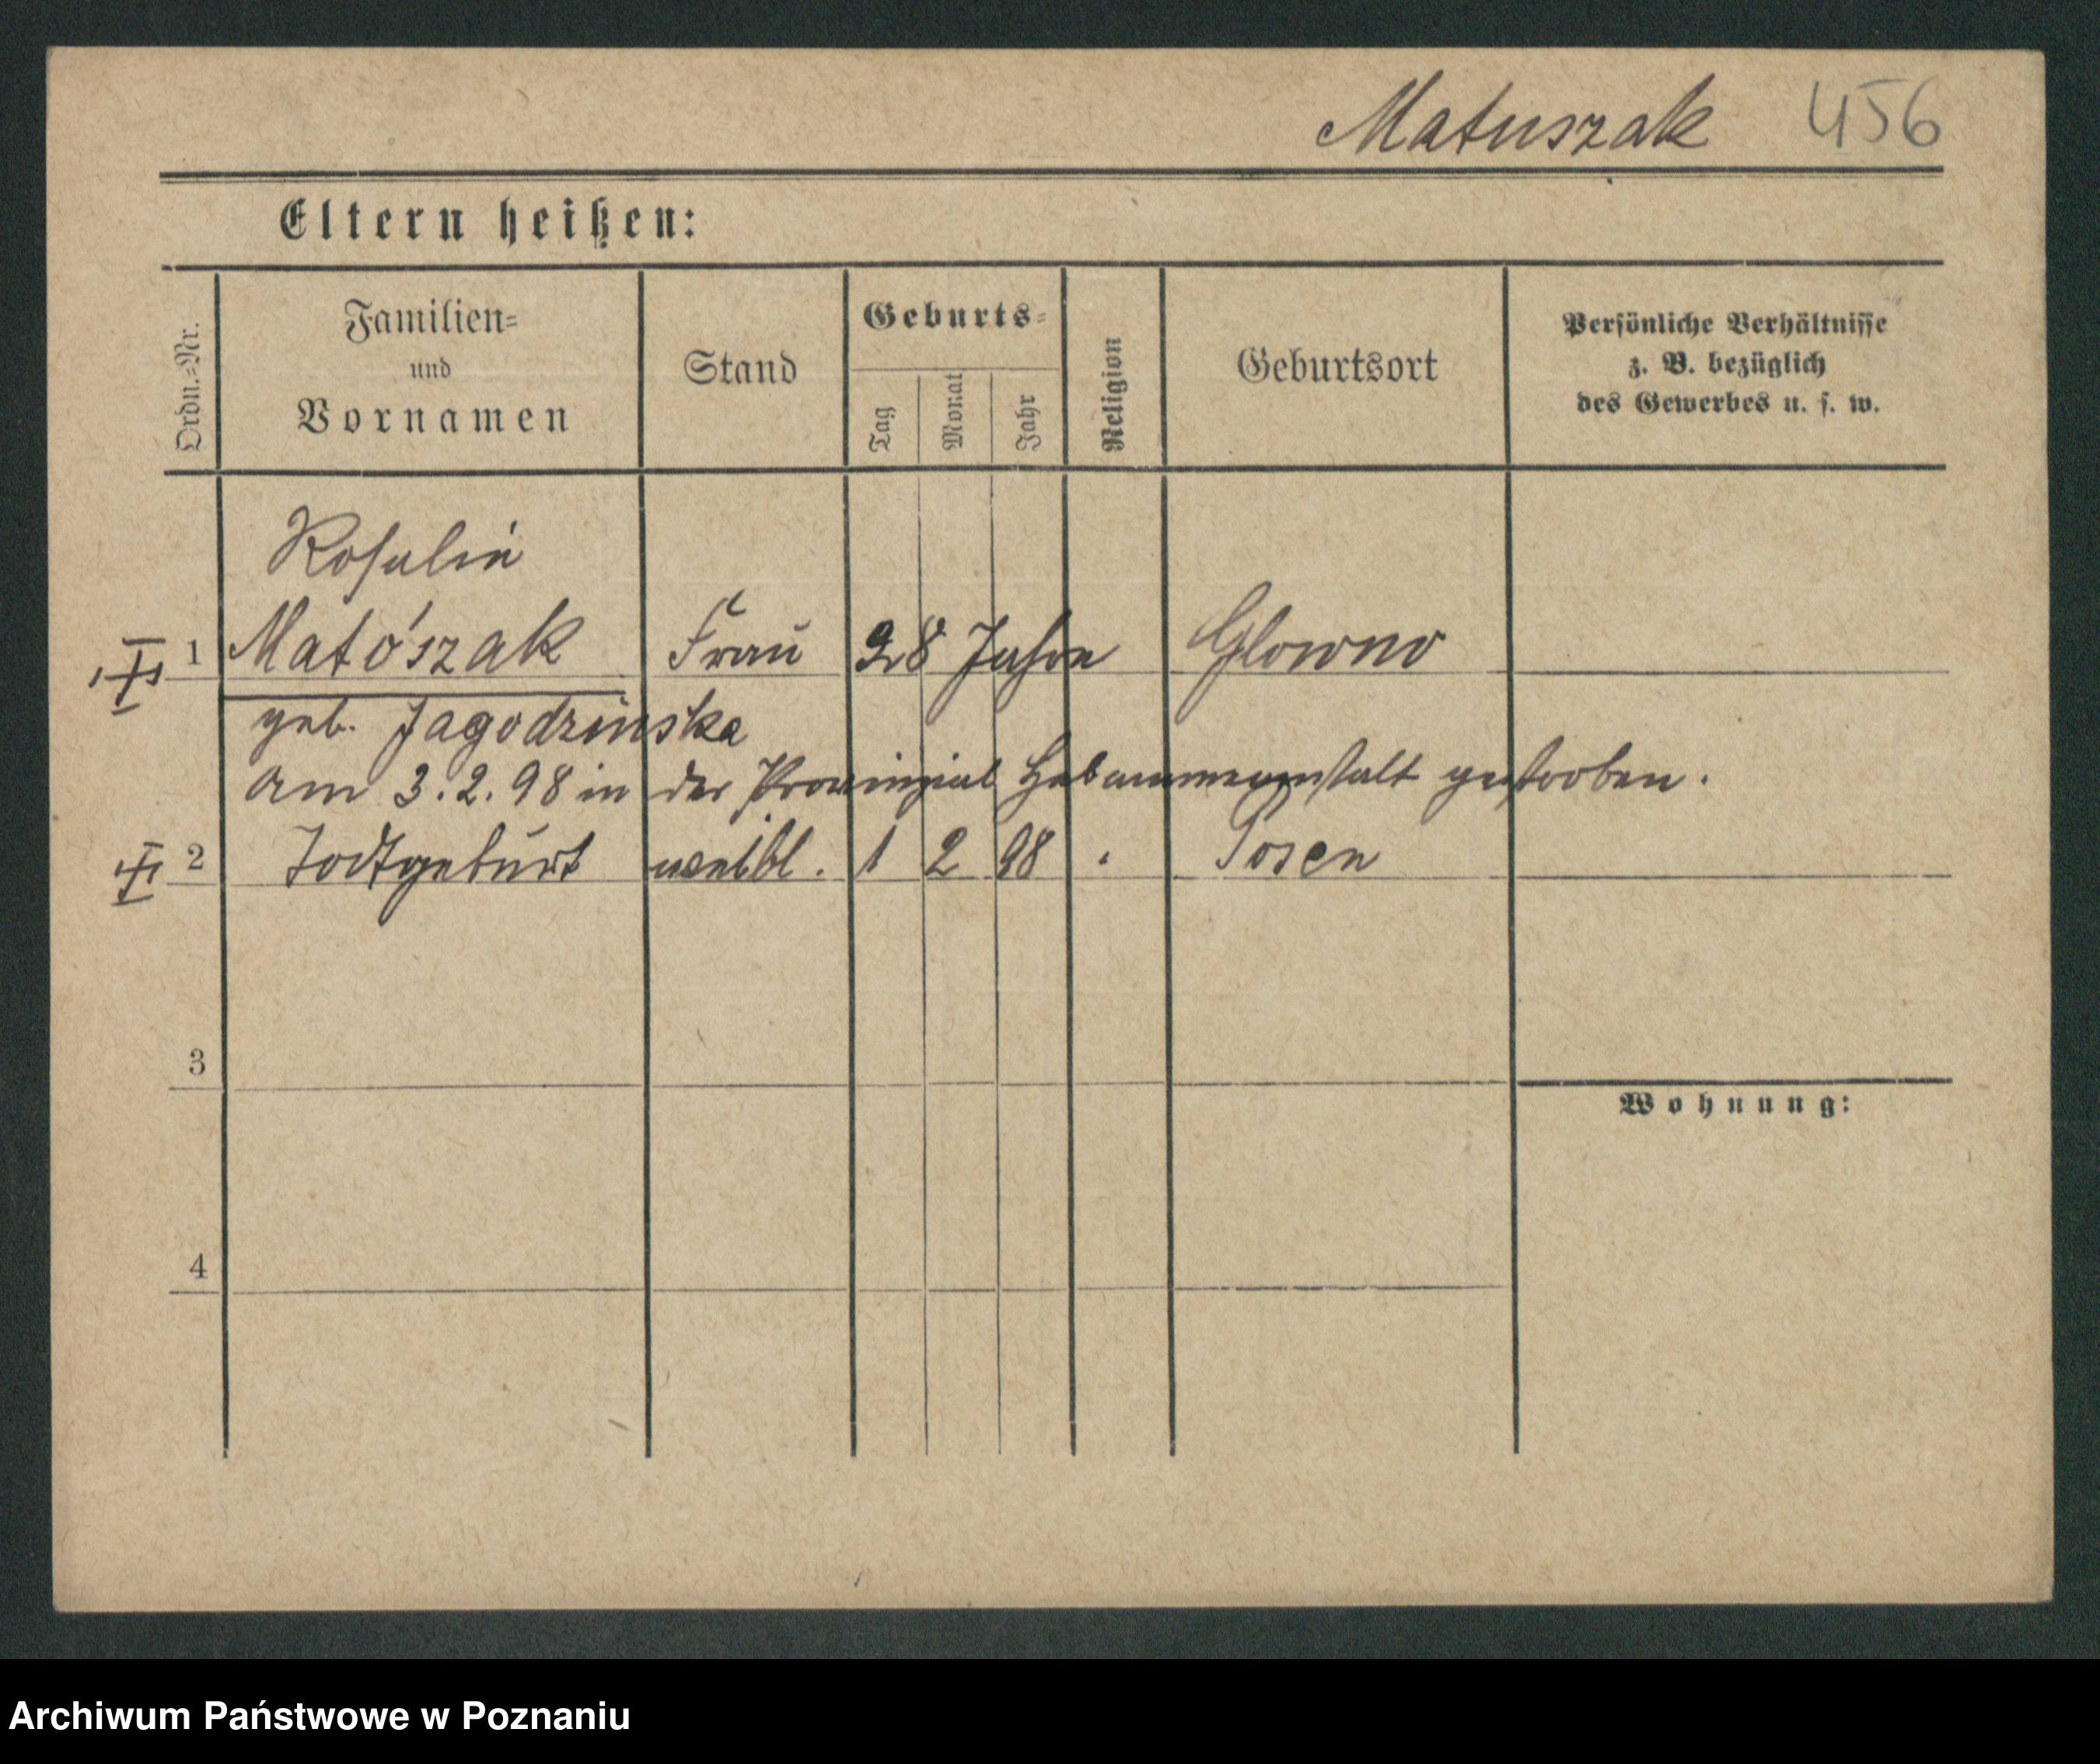 Matuszak 456
Eltern heißen:
Ordn.=Nr.
Familien=
und
Vornamen
Stand
Geburts=
Tag
Monat
Jahr
Religion
Geburtsort
Persönliche Verhältnisse
z. B. bezüglich
des Gewerbes u. s. w.
Rosalie
1 Matószak Frau 28 Jahre Glowno
geb. Jagodzinska
am 3.2.98 in der Provinzial Hebammenanstalt gestorben.
2 Todtgeburt weibl. 1 2 98 Posen
3
Wohnung:
4
Archiwum Państwowe w Poznaniu